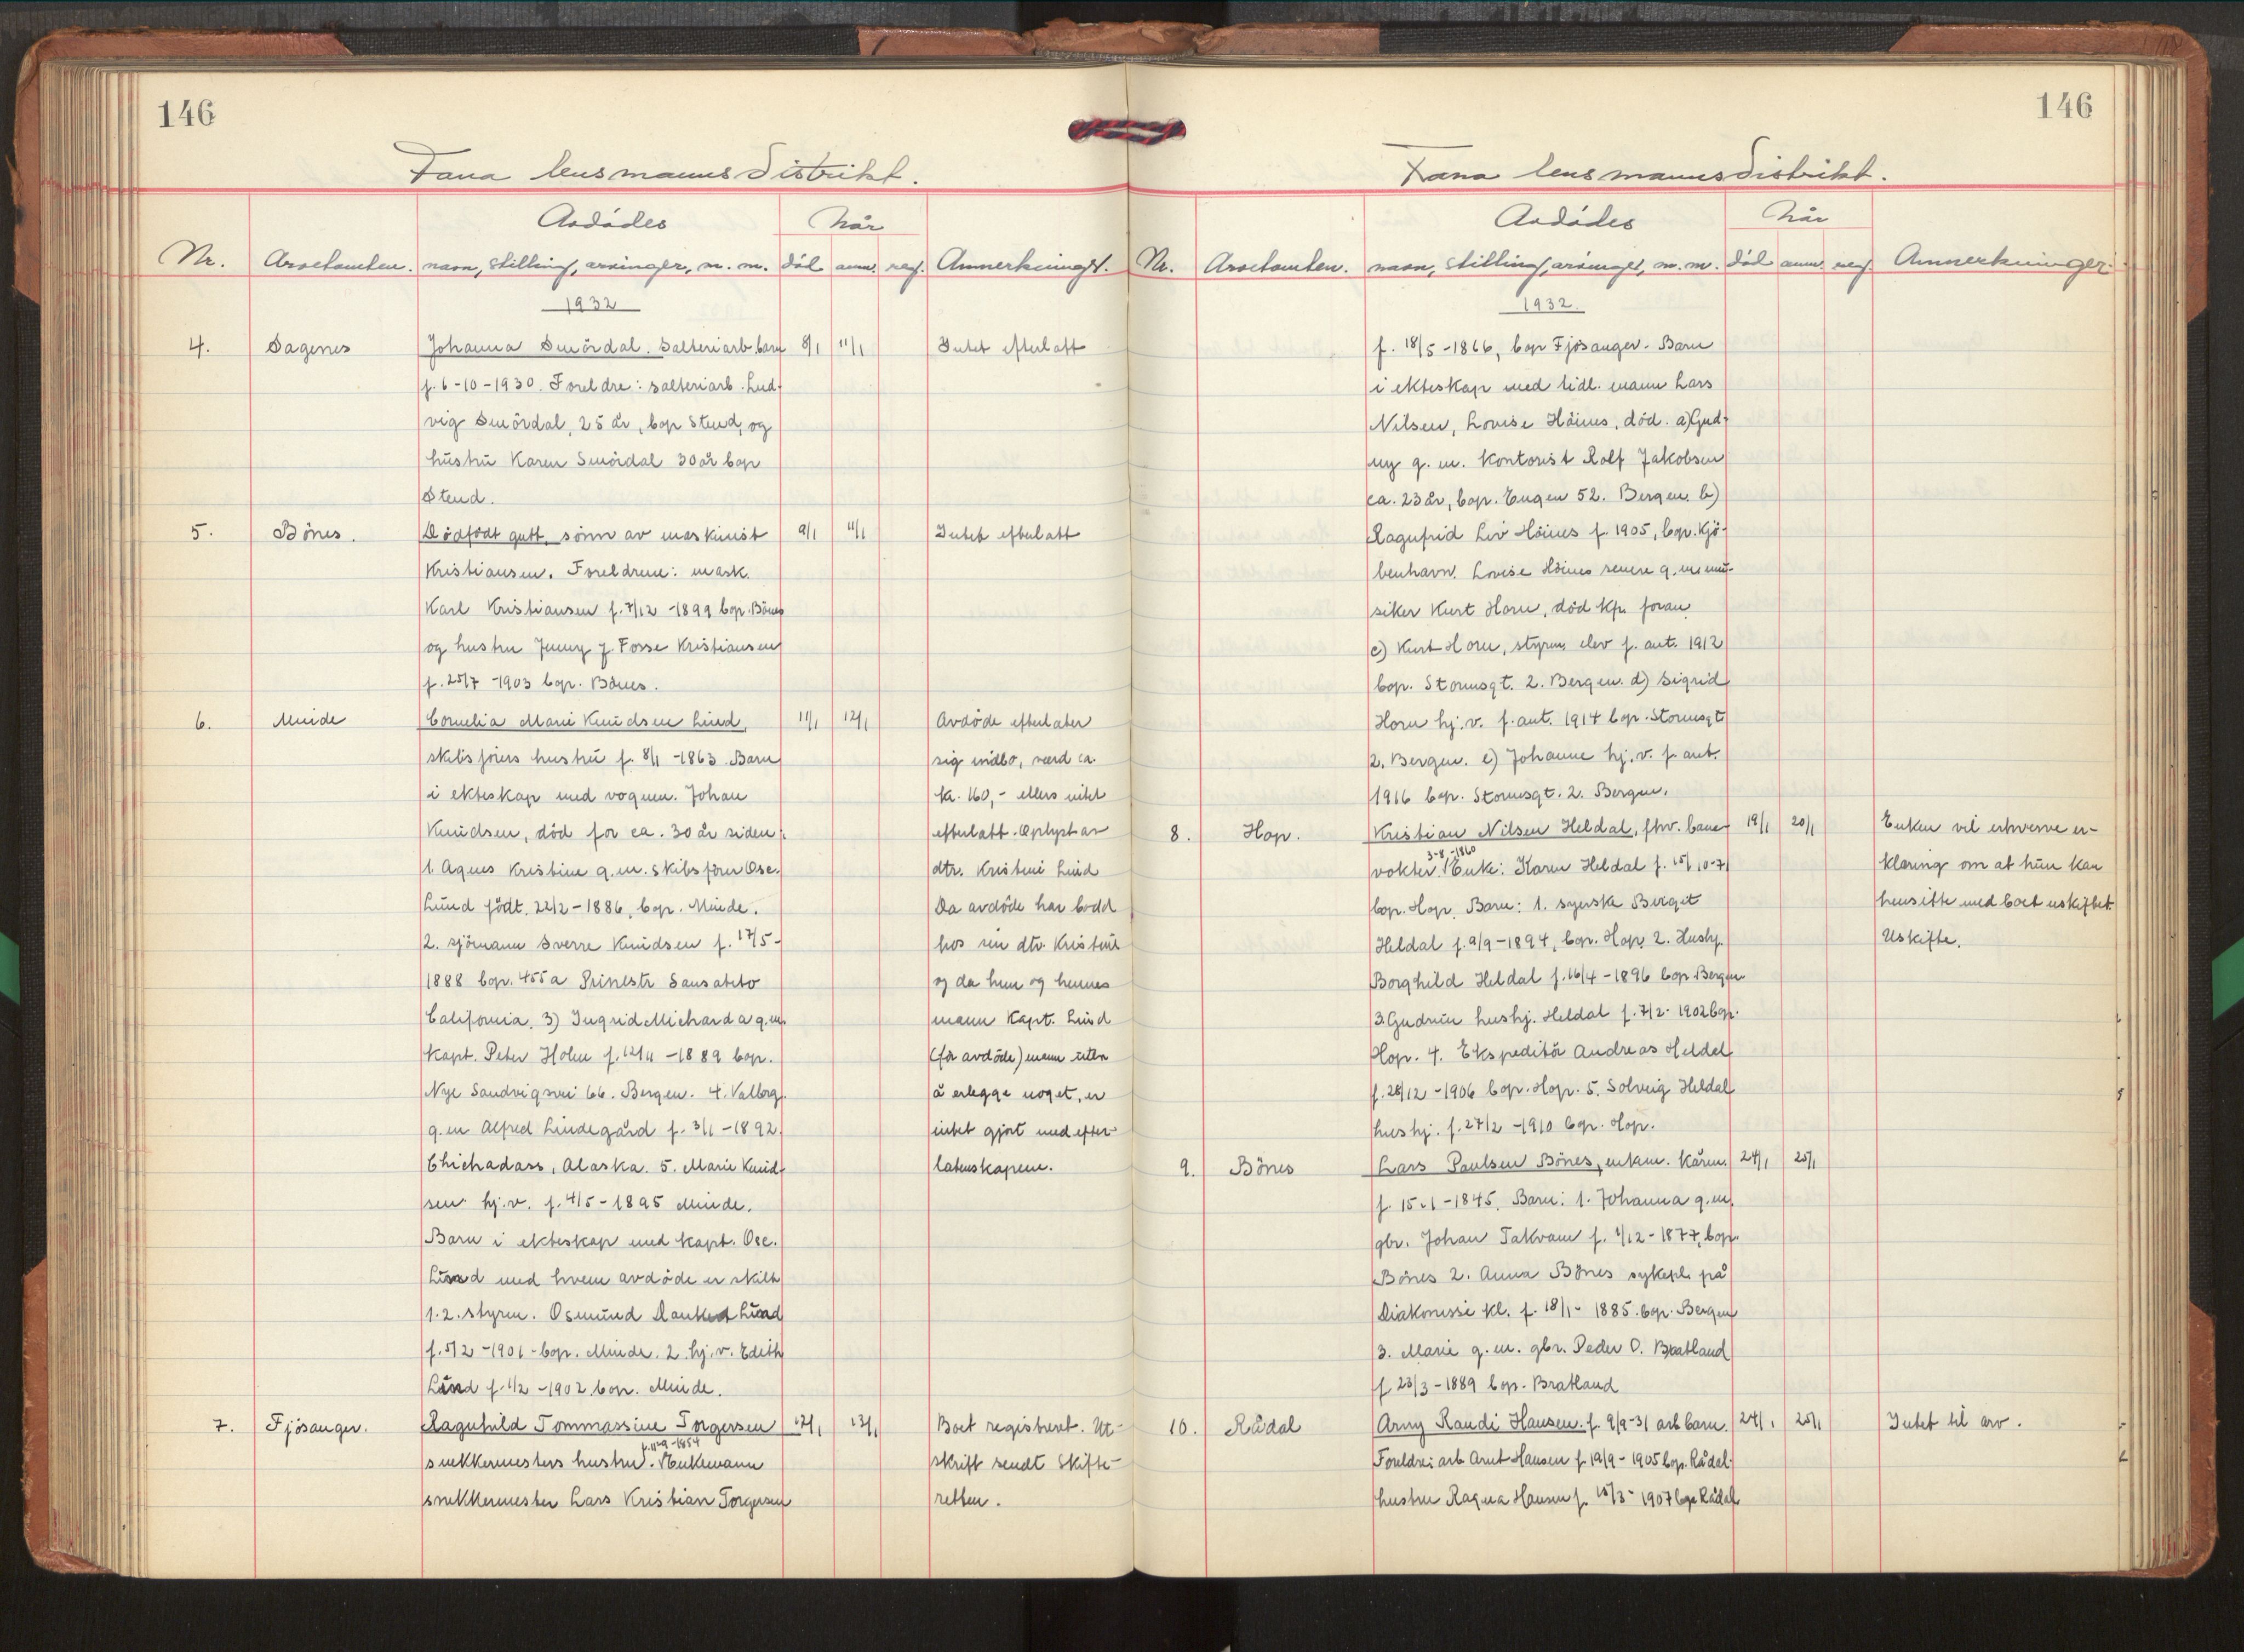 146
Fana lensmannsdistrikt.
Avdödes
Når
Nr. Avsetomten. navn, stilling, arvinger, m. m. död anm. reg. Anmerkninger.
1932
4. Dagenes Johanna Smördal. Salteriarb. barn 8/1 11/1 Intet efterlatt
f. 6-10-1930. Foreldre: salteriarb. Lud-
vig Smördal, 25 år, bop Stend, og
hustru Karen Smördal 30 år bop
Stend.
5. Bönes. Dödfödt gutt, sönn av maskinist 9/1 11/1 Intet efterlatt
Kristiansen. Foreldrene: mask.
Karl Kristiansen f. 7/12 -1899 bop. Bönes
og hustru Jenny f. Fosse Kristiansen
f. 25/7 -1903 bop. Bönes.
6. Minde Cornelia Marie Knudsen Lund, 11/1 12/1 Avdöde efterlater
skibsförers hustru f. 8/1 -1863. Barn sig indbo, verd ca.
i ekteskap med vognm. Johan kr. 160,- ellers intet
Knudsen, död for ca. 30 år siden: efterlatt. Oplyst av
1. Agnes Kristine g.m. skibsförer Osc. dtr. Kristine Lund
Lund födt. 22/2-1886, bop. Minde. Da avdöde har bodd
2. sjömann Sverre Knudsen f. 17/5- hos sin dtr. Kristine
1888 bop. 455a Prinestr Sansalito og da hun og hennes
California. 3) Ingrid Micharda g.m. mann Kapt. Lund
Kapt. Peter Holm f. 12/11 -1889 bop. (for avdöde) mann uten
Nye Sandvigsvei 66. Bergen. 4. Valborg å erlegge noget, er
g.m Alfred Lindegård f. 3/1 -1892. intet gjort med efter-
Chichadass, Alaska. 5. Marie Knud- latenskapene.
sen hj.v. f. 4/5 - 1895 Minde.
Barn i ekteskap med kapt. Osc.
Lund med hvem avdöde er skilt
1. 2. styrm. Osmund Lund
f. 5/2 -1901 - bop. Minde. 2. hj.v. Edith
Lund f. 1/2 -1902 bop. Minde.
7. Fjösanger. Ragnhild Tommassine Torgersen 12/1 13/1 Boet registrert. Ut-
f. 11-9-1854
snekkermesters hustru. Enkemann skrift sendt Skifte-
snekkermester Lars Kristian Torgersen retten.
146
Fana lensmannsdistrikt.
Avdödes
Når
Nr. Avsetomten. navn, stilling, arvinger, m. m. död anm. reg. Anmerkninger.
1932.
f. 18/5 -1866, bop Fjösanger. Barn
i ekteskap med tidl. mann Lars
Nilsen, Lovise Höines, död. a) Gud-
ny g. m. Kontorist Rolf Jakobsen
ca. 23 år, bop. Engen 52. Bergen. b)
Ragnfrid Liv Höines f. 1905, bop. Kjö-
benhavn. Lovise Höines senere g. m. mu-
siker Kurt Horn, död kfr. foran
c) Kurt Horn, styrm. elev f. ant. 1912
bop. Stormsgt. 2. Bergen. d) Sigrid
Horn hj.v. f. ant. 1914 bop. Stormsgt
2. Bergen. e) Johanne hj.v. f. ant.
1916 bop. Stormsgt. 2. Bergen.
8. Hop. Kristian Nilsen Heldal, fhv. bane- 19/1 20/1 Enken vil erhverve er-
3-8-1860
vokter. Enke: Karen Heldal f. 15/10-71 klæring om at hun kan
bop. Hop. Barn: 1. syerske Birget hensitte med boet uskiftet.
Heldal f. 9/9-1894, bop. Hop. 2. Hushj. Uskifte.
Borghild Heldal f. 16/4 -1896 bop. Bergen
3. Gudrun hushj. Heldal f. 7/2- 1902 bop.
Hop. 4. Ekspeditör Andreas Heldal
f. 28/12 -1906 bop. Hop. 5. Solveig Heldal
hushj. f. 27/2 -1910 bop. Hop.
9. Bönes Lars Paulsen Bönes, enkem. Kårm. 24/1 25/1
f. 15-1-1845. Barn: 1. Johanna g.m.
gbr. Johan Takvam f. 1/12 - 1877, bop.
Bönes 2. Anna Bönes sykepl. på
Diakonisse kl. f. 18/1 - 1885. bop. Bergen
3. Marie g. m. gbr. Peder O. Bratland
f. 23/3 -1889 bop. Bratland
10. Rådal Arny Randi Hansen. f. 9/9-31 arb barn. 24/1 25/1 Intet til arv.
Foreldre: arb Arnt Hansen f. 19/9 - 1905 bop. Rådal.
hustru Ragna Hansen f. 15/3 - 1907 bop Rådal